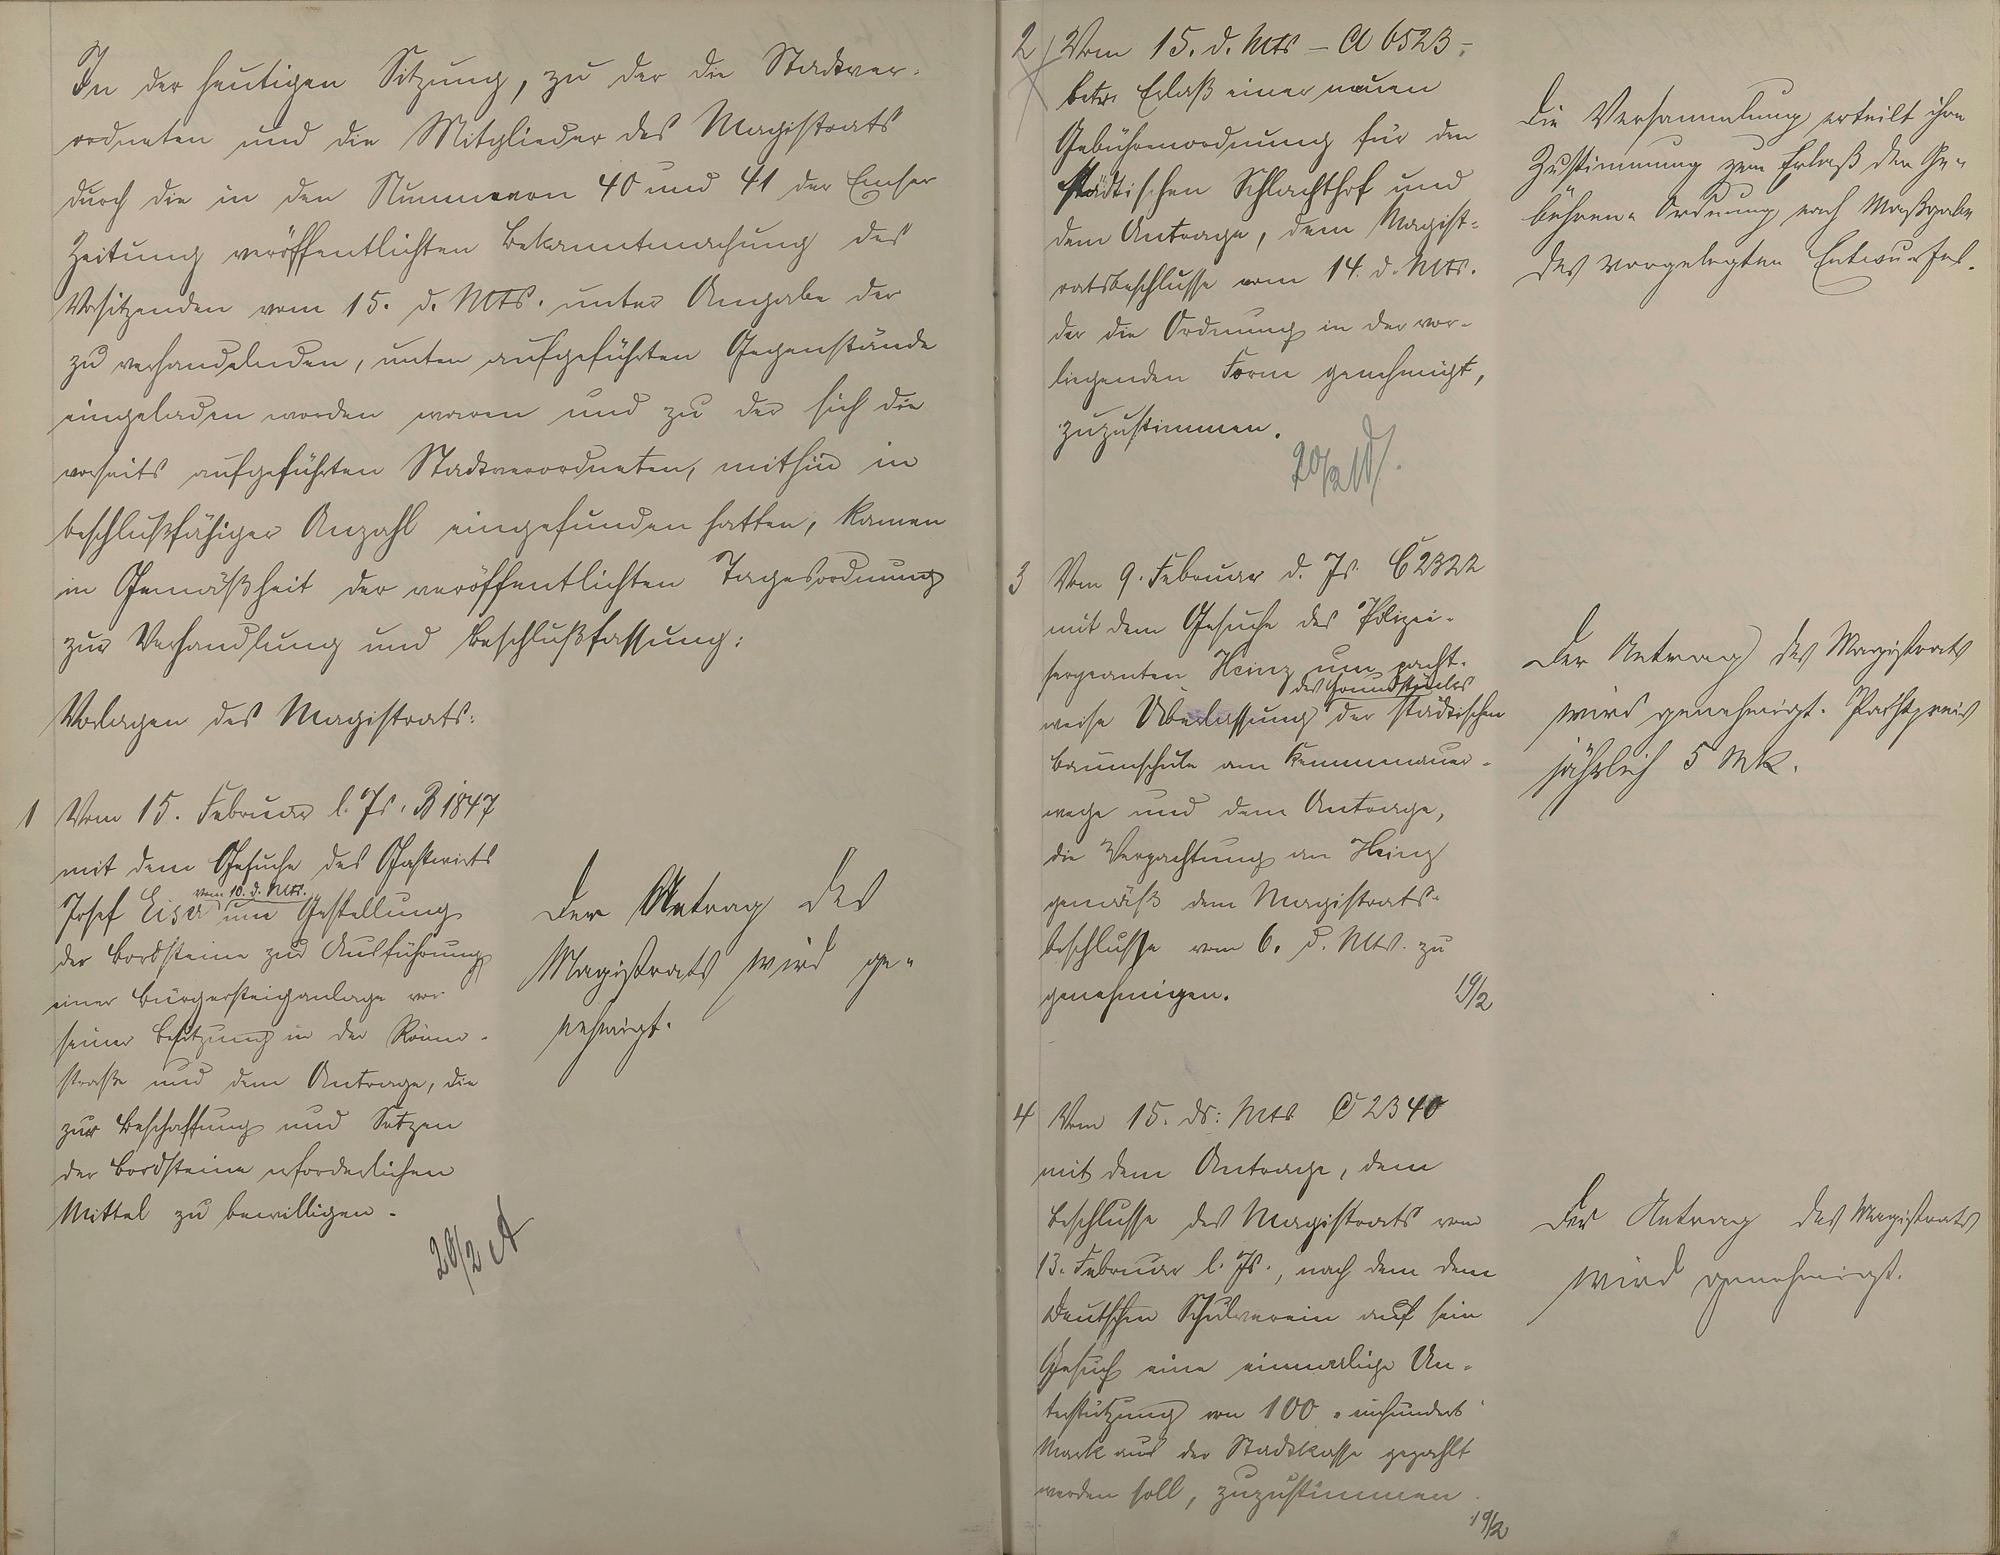 In der heutigen Sitzung, zu der die Stadtver-
ordneten und die Mitglieder des Magistrats
durch die in den Nummern 40 und 41 der Emser
Zeitung veröffentlichten Bekanntmachung des
Vorsitzenden vom 15. d. Mts. unter Angabe der
zu verhandelnden, unten aufgeführten Gegenstände
eingeladen worden waren und zu der sich die
vorseits aufgeführten Stadtverordneten, mithin in
beschlußfähiger Anzahl eingefunden hatten, kamen
in Gemäßheit der veröffentlichten Tagesordnung
zur Verhandlung und Beschlußfassung:
Vorlagen des Magistrats:
1 Vom 15. Februar l. Js. B 1847
mit dem Gesuche des Gastwirts
vom 10. d. Mts.
Josef Eiser um Gestellung
der Bordsteine zur Ausführung
einer Bürgersteiganlage vor
seiner Besitzung in der Römer-
straße und dem Antrage, die
zur Beschaffung und Setzen
der Bordsteine erforderlichen
Mittel zu bewilligen.
20/2 A
Der Antrag des
Magistrats wird ge-
nehmigt.
2 Vom 15. d. Mts - A 6523 -
betr. Erlaß einer neuen
Gebührenordnung für den
städtischen Schlachthof und
dem Antrage, dem Magist-
ratsbeschlusse vom 14. d. Mts.
der die Ordnung in der vor-
liegenden Form genehmigt,
zuzustimmen.
20/2
Die Versammlung erteilt ihre
Zustimmung zum Erlaß der Ge-
bühren-Ordnung nach Maßgabe
des vorgelegten Entwurfes.
3 Vom 9. Februar d. Js. C 2322
mit dem Gesuche des Polizei-
sergeanten Heinz um pacht-
des Grundstückes
weise Überlassung der städtischen
Baumschule am Kemmenauer-
wege und dem Antrage,
die Verpachtung an Heinz
gemäß dem Magistrats-
beschlusse vom 6. d. Mts. zu
genehmigen.
19/2
Der Antrag des Magistrats
wird genehmigt. Pachtpreis
jährlich 5 Mk.
4 Vom 15. ds: Mts C 2340
mit dem Antrage, dem
Beschlusse des Magistrats vom
13. Februar l. Js., nach dem dem
Deutschen Schulverein auf sein
Gesuch eine einmalige Un-
terstützung von 100 - einhundert
Mark aus der Stadtkasse gezahlt
werden soll, zuzustimmen.
19/2
Der Antrag des Magistrats
wird genehmigt.